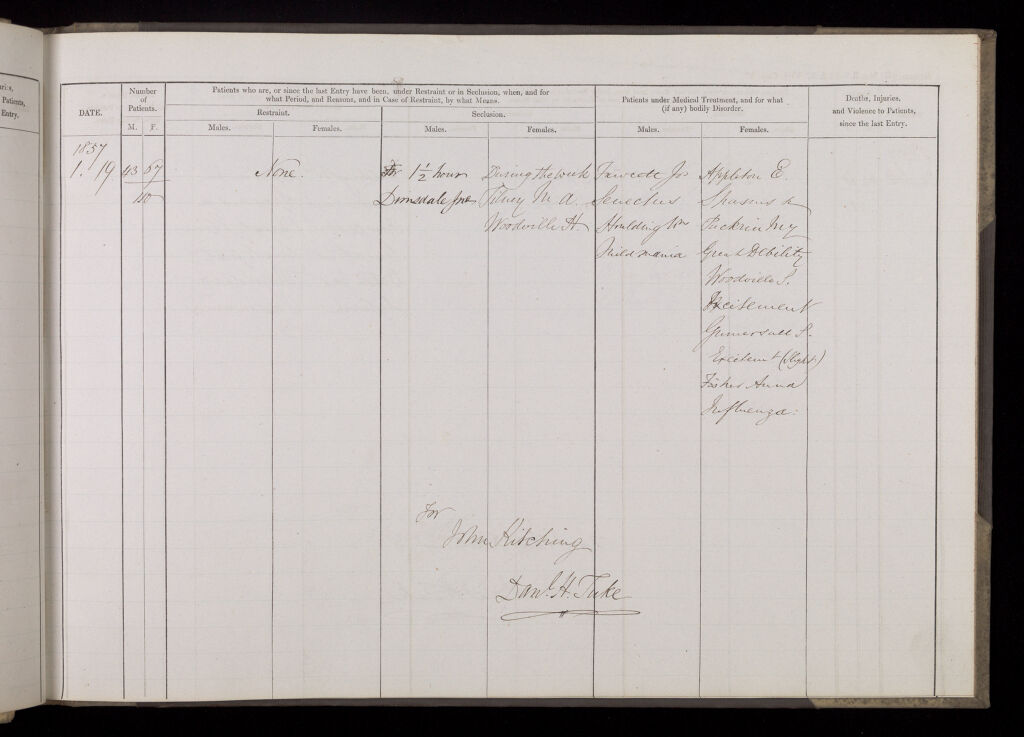 uries,
Patients,
Entry.
DATE.
Number
of
Patients.
M. F.
Patients who are, or since the last Entry have been, under Restraint or in Seclusion, when, and for
what Period, and Reasons, and in Case of Restraint, by what Means.
Restraint.
Seclusion.
Males.
Females.
Males.
Females.
Patients under Medical Treatment, and for what
(if any) bodily Disorder.
Males.
Females.
Deaths, Injuries,
and Violence to Patients,
since the last Entry.
1857
1. 19
43 67
110
None.
For 1½ hour
Dimsdale Jos
During the Week
Tilney M A.
Woodville H
Fawcett Jos
Senectus
Houlding Wm
Mild mania
Appleton E.
Spasms
Puckrin My
Great Debility
Woodville S.
Excitement
Gumersall S.
Excitemt (slight)
Fisher Anna
Influenza:
For
John Kitching
Danl. H. Tuke